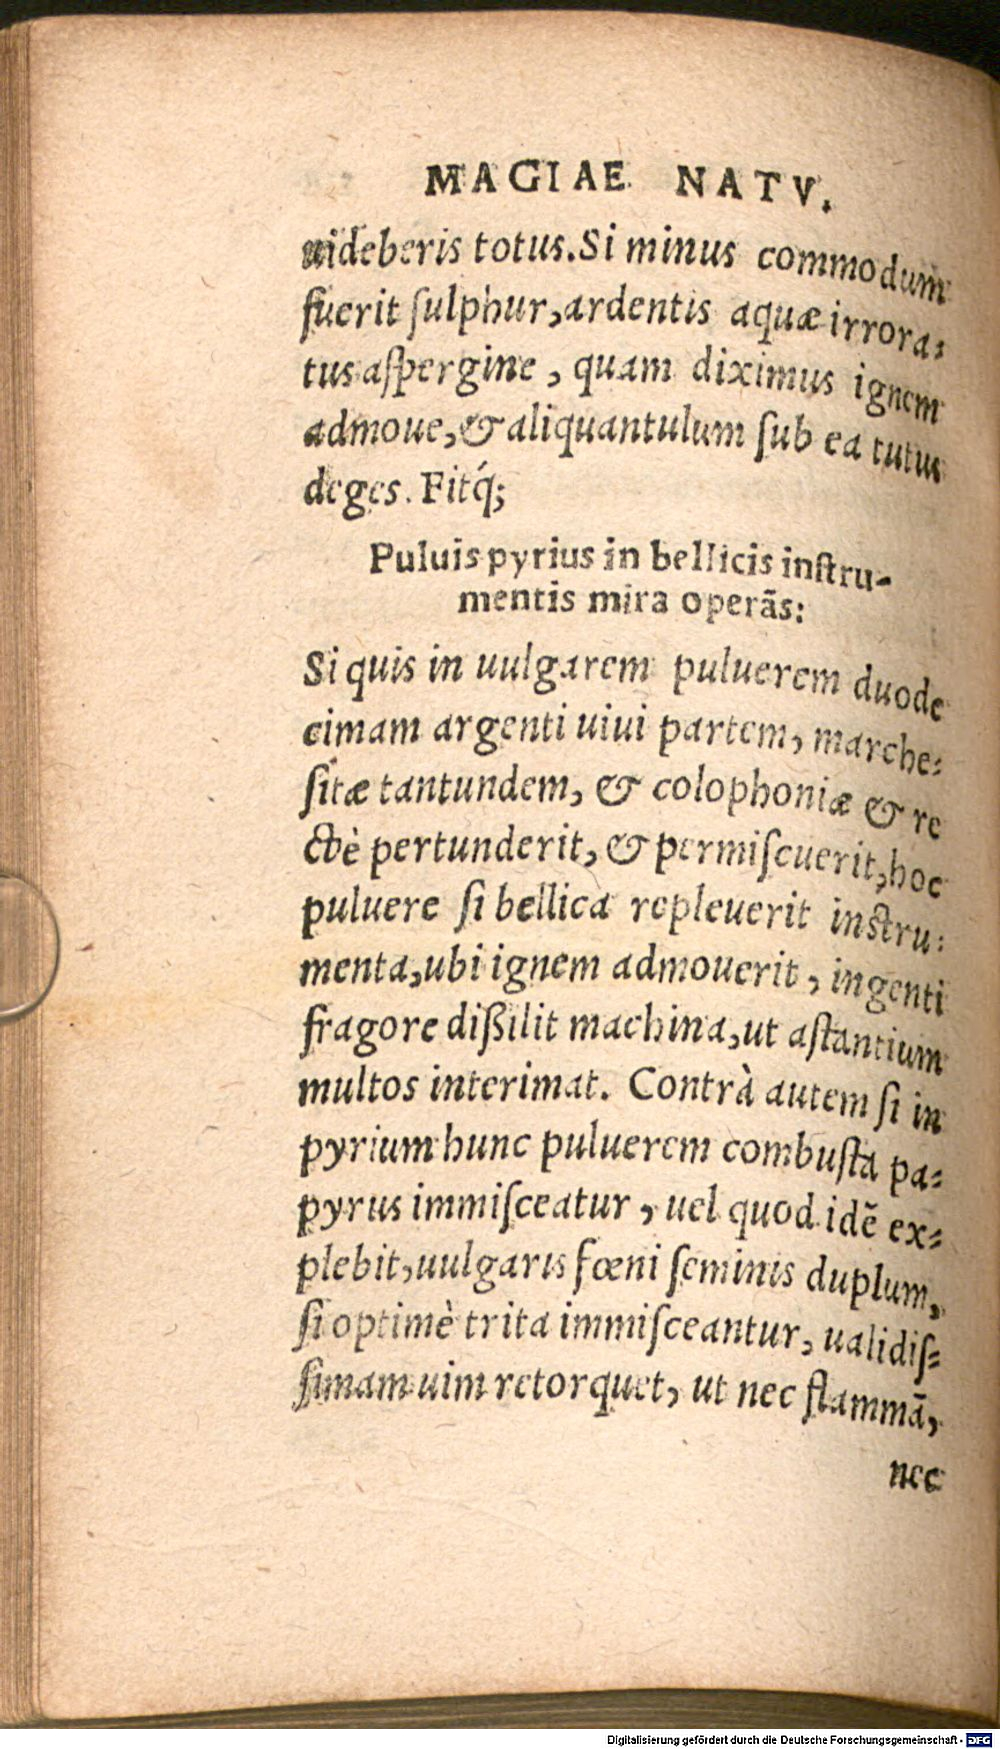 MAGIAE NATV.
uideberis totus. Si minus commodum
fuerit ſulphur, ardentis aquæ irrora-
tus aſpergine, quam diximus ignem
admoue, & aliquantulum ſub ea tutus
deges. Fitq́;
Puluis pyrius in bellicis inſtru-
mentis mira operãs:
Si quis in uulgarem puluerem duode
cimam argenti uiui partem, marche-
ſitæ tantundem, & colophoniæ & re
ctè pertunderit, & permiſcuerit, hoc
puluere ſi bellica repleuerit inſtru-
menta, ubi ignem admouerit, ingenti
fragore dißilit machina, ut aſtantium
multos interimat. Contrà autem ſi in
pyrium hunc puluerem combuſta pa-
pyrus immiſceatur, uel quod idẽ ex-
plebit, uulgaris fœni ſeminis duplum,
ſi optimè trita immiſceantur, ualidiſ-
ſimam uim retorquet, ut nec flammã,
nec
Digitalisierung gefördert durch die Deutsche Forschungsgemeinschaft - DFG